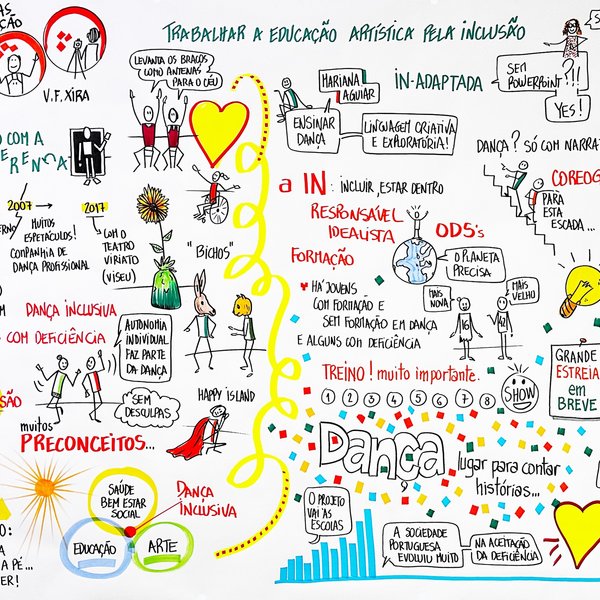 TRABALHAR A EDUCAÇÃO ARTÍSTICA PELA INCLUSÃO
AS
ÇÃO
V.F. XIRA
LEVANTA OS BRAÇOS
COMO ANTENAS
PARA O CÉU
COM A
2007
2017
MUITOS
ESPETÁCULOS!
COMPANHIA DE
DANÇA PROFISSIONAL
COM O
TEATRO
VIRIATO
(VISEU)
"BICHOS"
DANÇA INCLUSIVA
COM DEFICIÊNCIA
AUTONOMIA
INDIVIDUAL
FAZ PARTE
DA DANÇA
SEM
DESCULPAS
HAPPY ISLAND
SÃO
muitos
PRECONCEITOS...
SAÚDE
BEM ESTAR
SOCIAL
EDUCAÇÃO
ARTE
DANÇA
INCLUSIVA
O:
A
A PÉ...
ER!
MARIANA
AGUIAR
IN-ADAPTADA
SEM
POWERPOINT?!!
YES!
ENSINAR
DANÇA
LINGUAGEM CRIATIVA
E EXPLORATÓRIA!
DANÇA? SÓ COM NARRAT
COREOG
PARA
ESTA
ESCADA...
a IN: INCLUIR, ESTAR DENTRO
RESPONSÁVEL
IDEALISTA
ODS's
FORMAÇÃO
O PLANETA
PRECISA
HÁ JOVENS
COM FORMAÇÃO E
SEM FORMAÇÃO EM DANÇA
E ALGUNS COM DEFICIÊNCIA
MAIS
NOVA
MAIS
VELHO
16
42
TREINO! muito importante.
1 2 3 4 5 6 7 8
SHOW
GRANDE
ESTREIA
em
BREVE
Dança,
lugar para contar
histórias...
O PROJETO
VAI ÀS
ESCOLAS
A SOCIEDADE
PORTUGUESA
EVOLUIU MUITO
NA ACEITAÇÃO
DA DEFICIÊNCIA